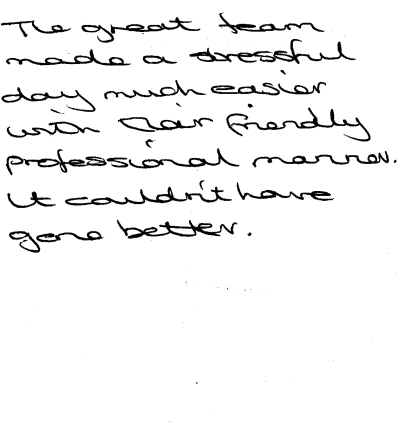 The great team
made a stressful
day much easier
with their friendly
professional manner.
It couldn't have
gone better.